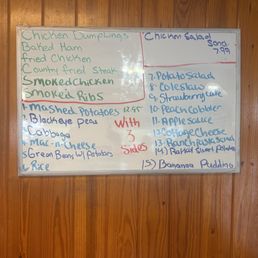 Chicken Dumplings
Baked Ham
fried Chicken
Country fried Steak
Smoked Chicken
Smoked Ribs
Chicken Salad
7.99
1. Mashed Potatoes
2. Blackeye Peas
3. Cabbage
4. Mac-n-Cheese
5. Green Beans W/ Potatoes
6. Rice
With
3
Sides
7. Potato Salad
8. Coleslaw
9. Strawberry Cake
10. Peach Cobbler
11. Applesauce
12. Cottage Cheese
13.
14.
15.) Banana Pudding